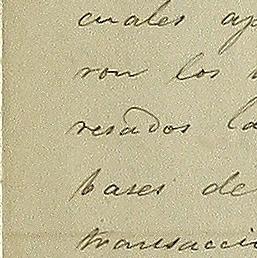 cuales ap
ron los
resados la
bases de
transacci